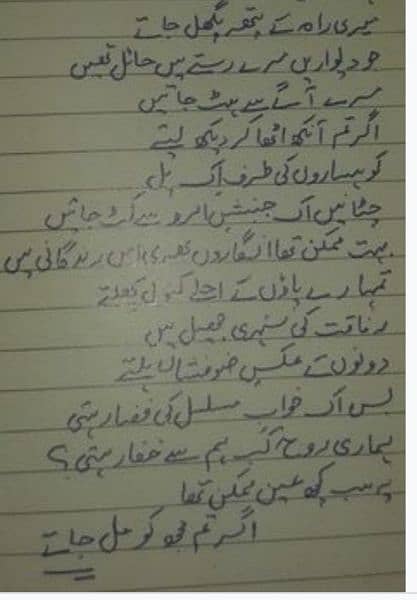 میری راہ کے پتھر پگھل جاتے
جو دیواریں میرے رستے میں حائل تھیں
میرے آگے سے ہٹ جاتیں
اگر تم آنکھ اٹھا کر دیکھ لیتے
کوہساروں کی طرف اک پل
چٹانیں اک جنبش ابرو سے کٹ جاتیں
بہت ممکن تھا انگاروں بھری اس زندگانی میں
تمہارے پاؤں کے اجلے کنول کھلتے
رفاقت کی سنہری جھیل میں
دونوں کے عکس ضوفشاں بنتے
بس اک خواب مسلسل کی فضا رہتی
ہماری روح کب ہم سے خفا رہتی؟
یہ سب کچھ عین ممکن تھا
اگر تم مجھ کو مل جاتے